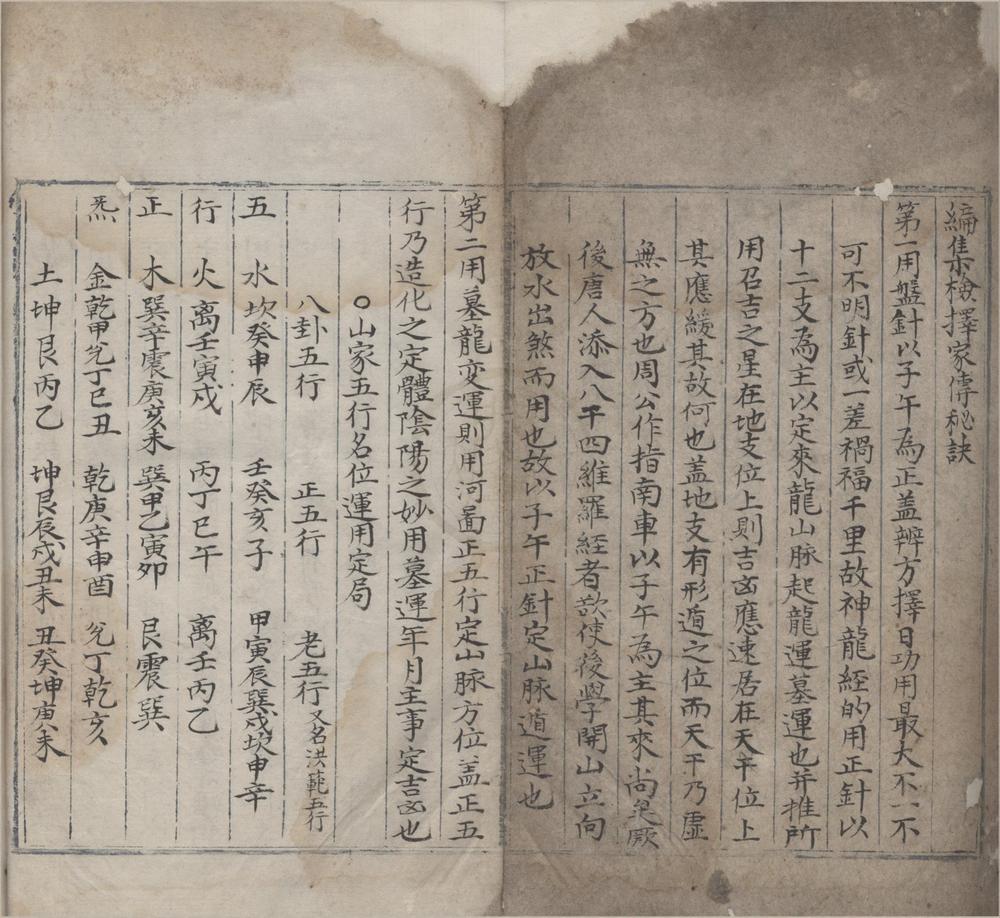 編集檢擇家傳秘訣
第一用盤針以子午為正盖辨方擇日功用最大不一不
可不明針或一差禍福千里故神龍經的用正針以
十二支為主以定來龍山脉起龍運墓運也并推所
用召吉之星在地支位上則吉凶應速居在天干位上
其應緩其故何也盖地支有形遁之位而天干乃虛
無之方也周公作指南車以子午為主其來尚矣厥
後唐人添入八干四維羅経者欲使後學開山立向
放水出煞而用也故以子午正針定山脉遁運也
第二用墓龍变運則用河啚正五行定山脉方位盖正五
行乃造化之定體陰陽之妙用墓運年月主事定吉凶也
○山家五行名位運用定局
八卦五行 正五行 老五行又名洪範五行
五 水 坎癸申辰 壬癸亥子 甲寅辰巽戌坎申辛
行 火 离壬寅戌 丙丁巳午 离壬丙乙
正 木 巽辛震庚亥未 巽甲乙寅卯 艮震巽
炁 金 乾甲兊丁巳丑 乾庚辛申酉 兊丁乾亥
土 坤艮丙乙 坤艮辰戌丑未 丑癸坤庚未